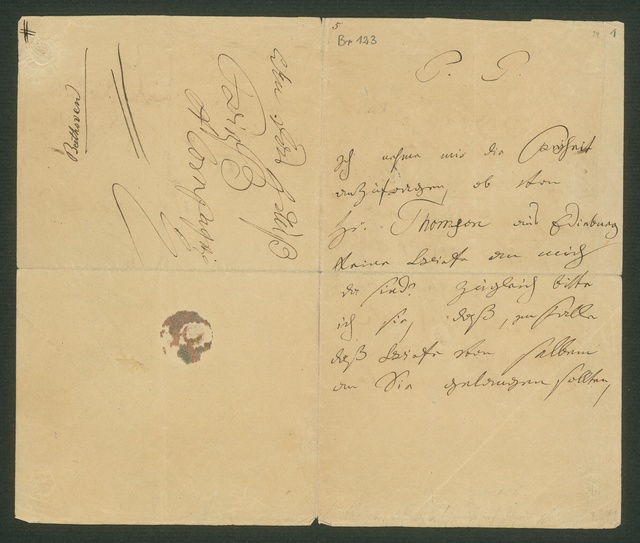 5
Br 123
1
P. P.
Ich nehme mir die Freiheit
anzufragen, ob von
Hr. Thomson aus Edinburg
keine Briefe an mich
da sind? zugleich bitte
ich sie, daß, im Falle
daß Briefe von selbem
an Sie gelangen sollten,
von
Fries
Compagnie
Beethoven
#